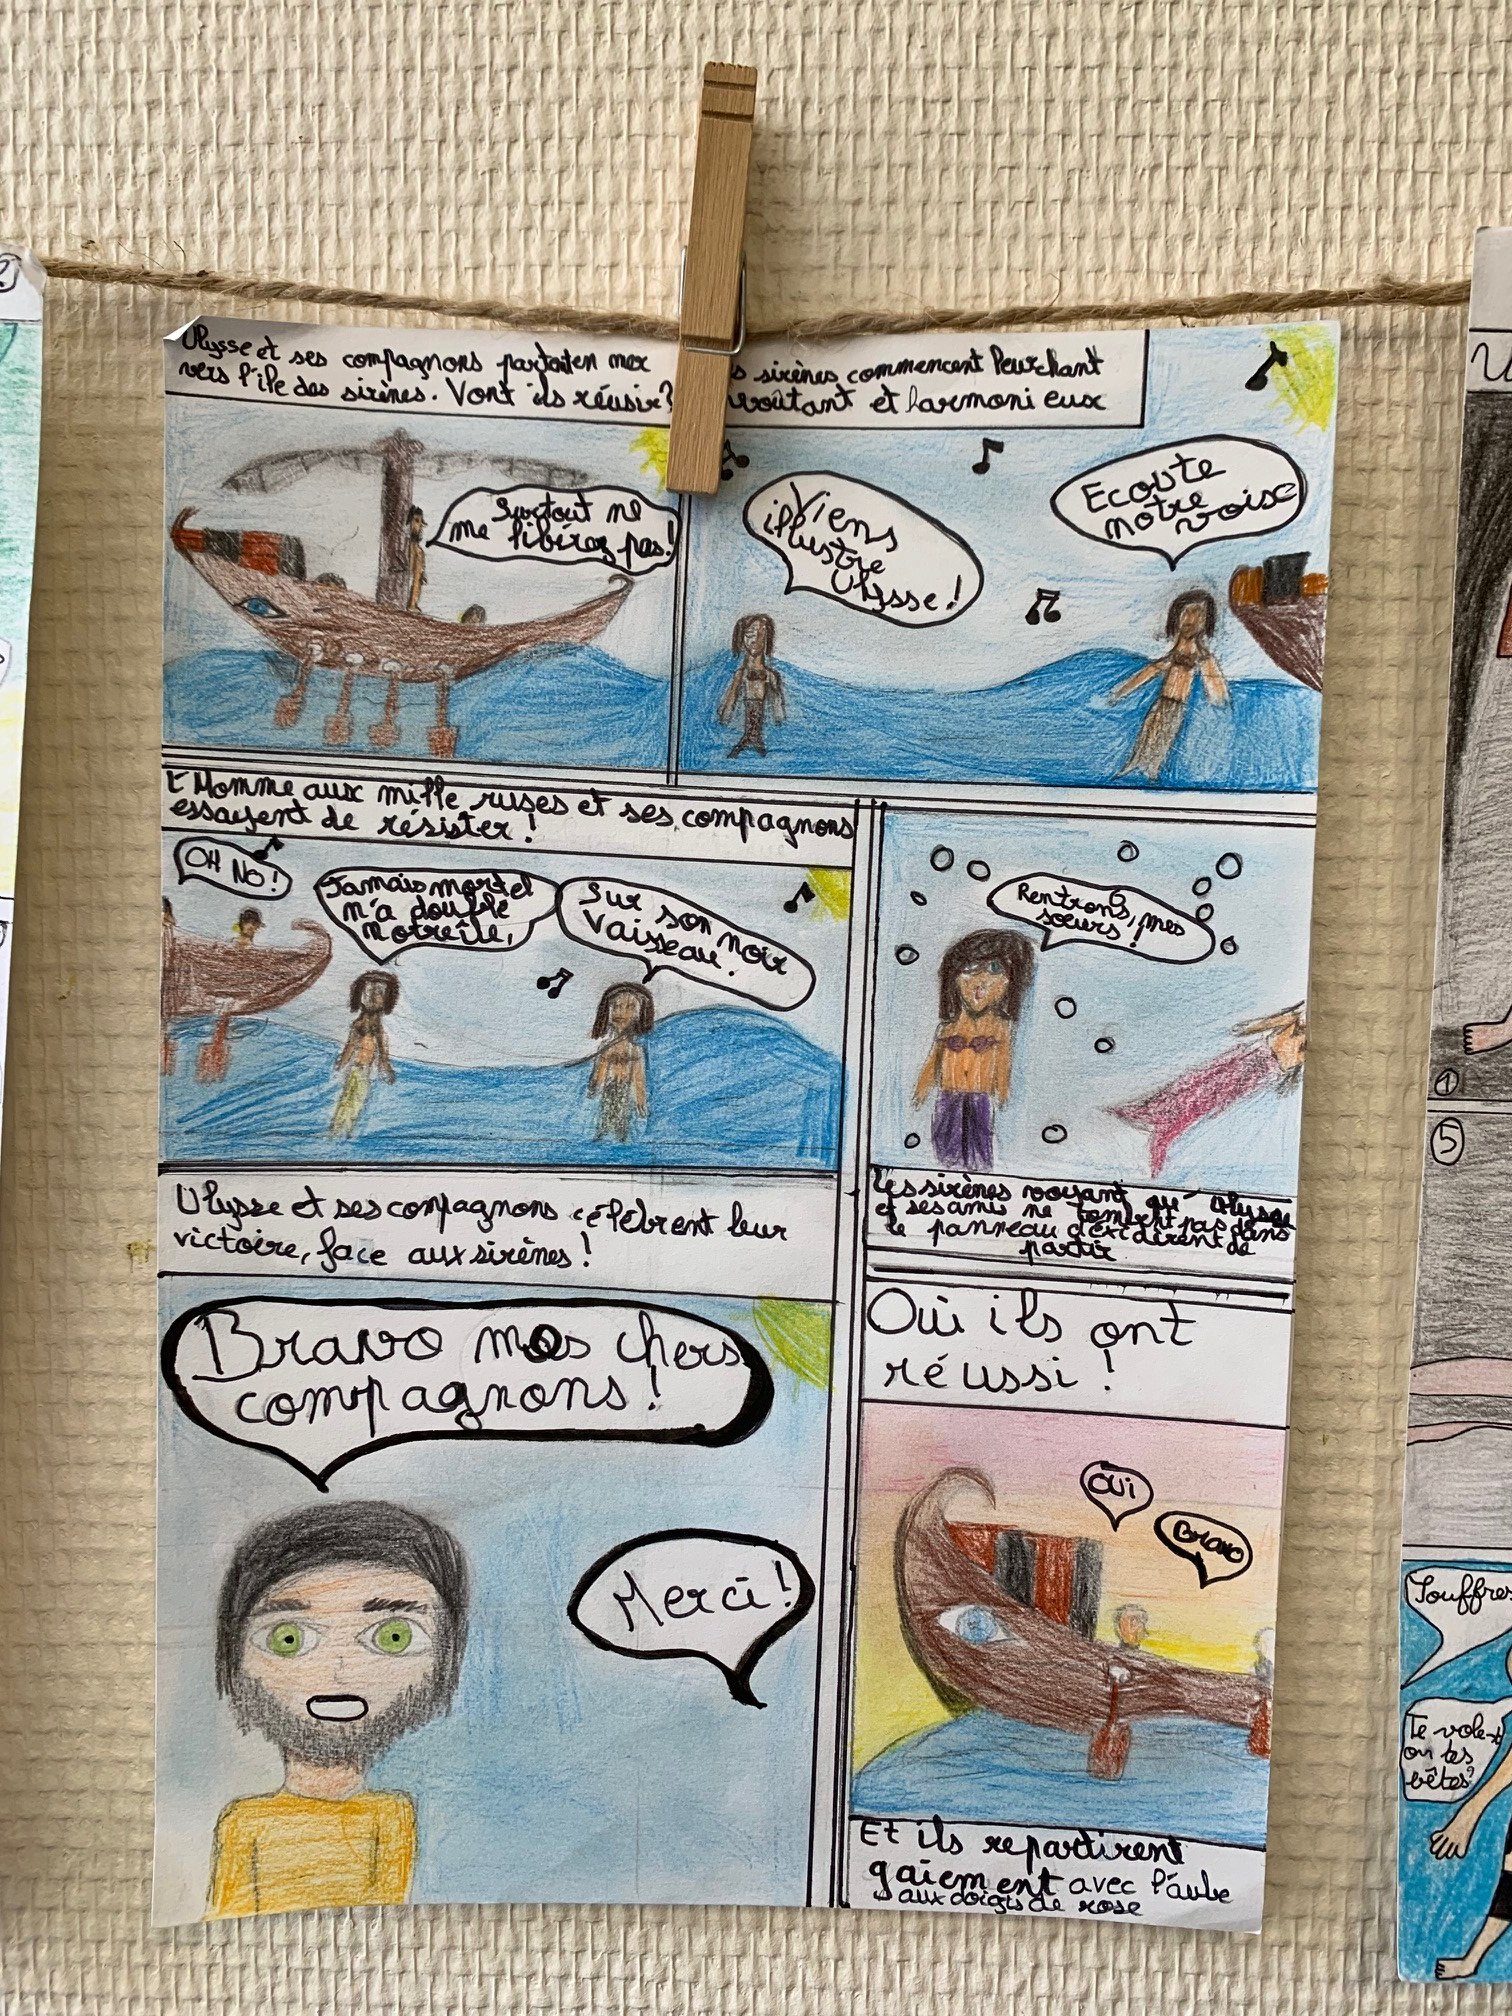 Ulysse et ses compagnons partent en mer
vers l'île des sirènes. Vont ils réusir?
Surtout ne
me libérez pas!
s sirènes commencent leur chant
voûtant et harmoni eux
Viens
illustre
Ulysse!
Ecoute
notre
voise
L'Homme aux mille ruses et ses compagnons
essayent de résister!
OH NO!
Jamais mortel
n'a doublé
notre île,
Sur son noir
vaisseau.
Rentrons, mes
sœurs!
Les sirènes voyant qu' Ulysse
et ses amis ne tombent pas dans
le panneau décidirent de
partir
Ulysse et ses compagnons célèbrent leur
victoire, face aux sirènes!
Bravo mes chers
compagnons!
Merci!
Oui ils ont
réussi!
OUi
Bravo
Et ils repartirent
gaiement avec l'aube
aux doigts de rose
1
5
Souffres
Te vole-t
on tes
bêtes?